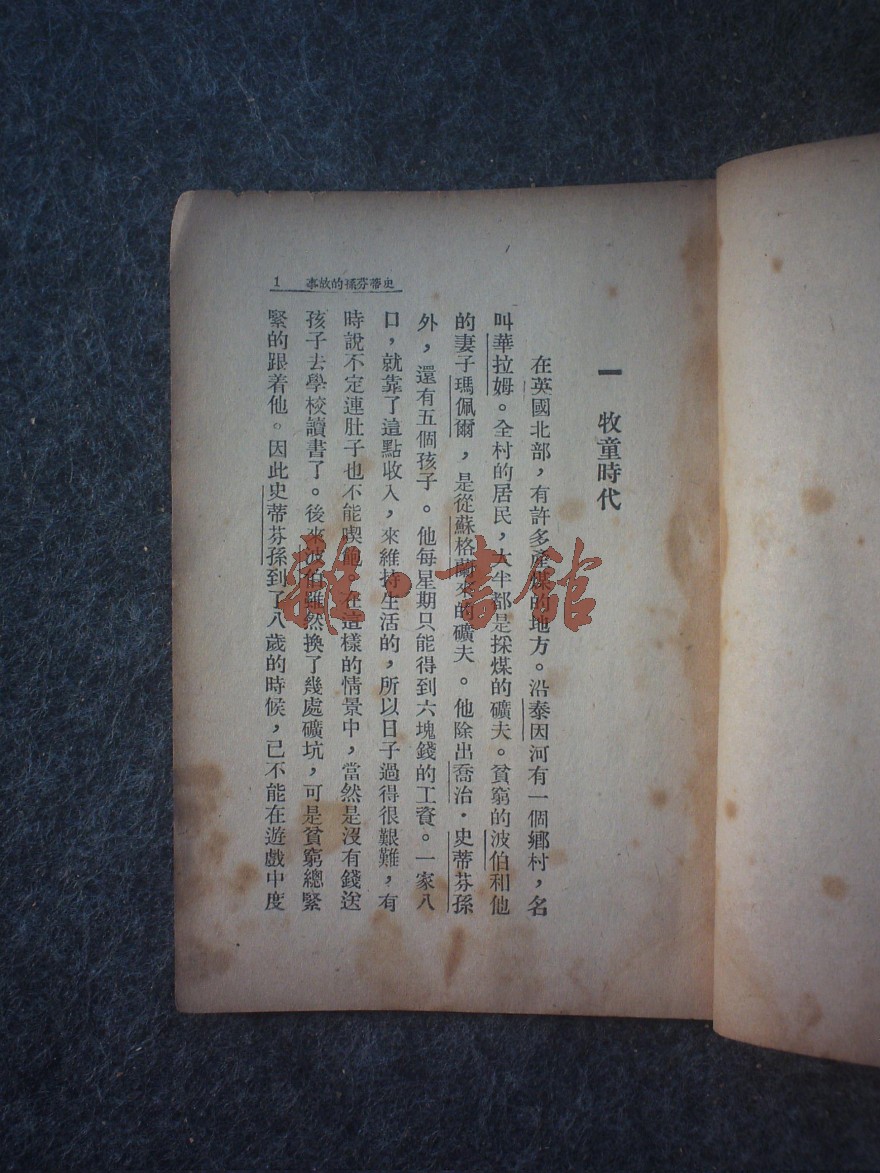 史蒂芬孫的故事 1
一 牧童時代
在英國北部，有許多產煤的地方。沿泰因河有一個鄉村，名
叫華拉姆。全村的居民，大半都是採煤的礦夫。貧窮的波伯和他
的妻子瑪佩爾，是從蘇格蘭來的礦夫。他除出喬治·史蒂芬孫
外，還有五個孩子。他每星期只能得到六塊錢的工資。一家八
口，就靠了這點收入，來維持生活的，所以日子過得很艱難，有
時說不定連肚子也不能喫飽。在這樣的情景中，當然是沒有錢送
孩子去學校讀書了。後來波伯雖然換了幾處礦坑，可是貧窮總緊
緊的跟着他。因此史蒂芬孫到了八歲的時候，已不能在遊戲中度
雜·書館